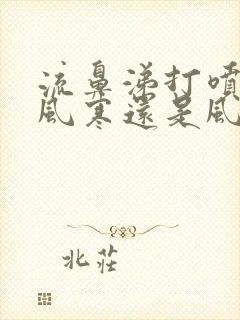 流鼻涕打噴
風寒還是風
北莊